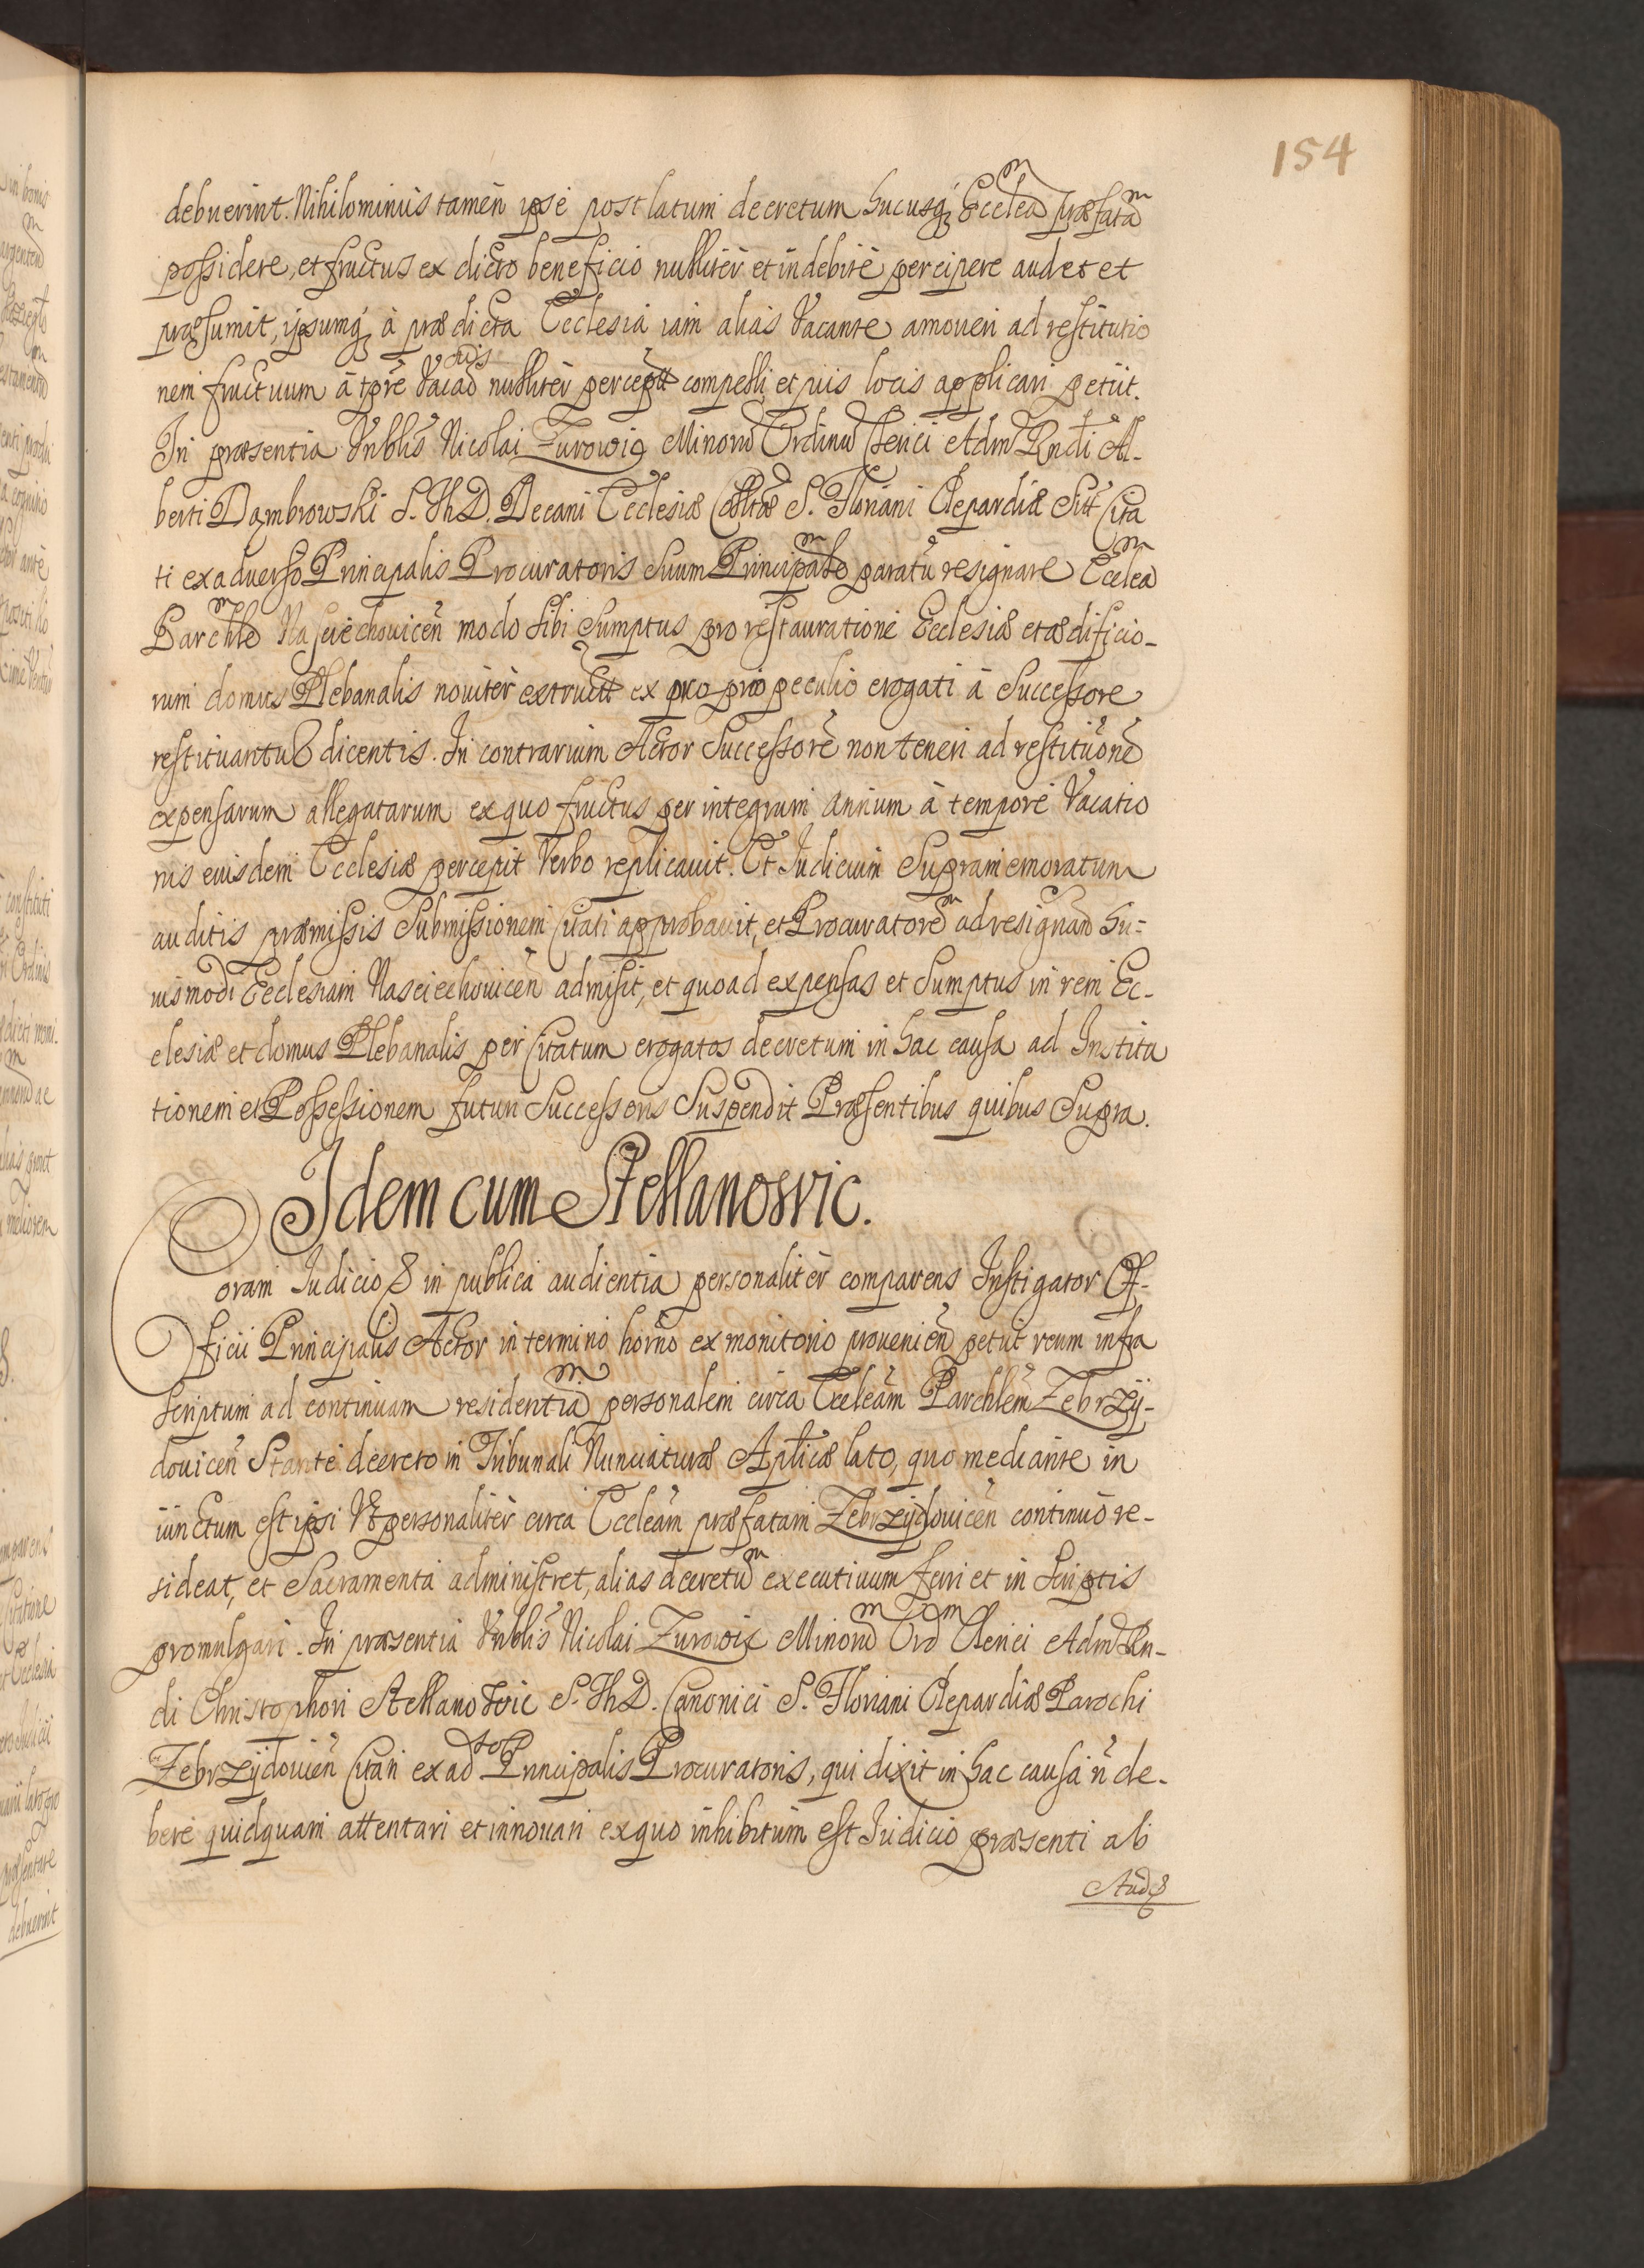 154
debuerint. Nihilominus tamen ipse post latum decretum hucusq Eccleam præfatam
possidere, et fructus ex dicto beneficio nulliter et indebite percipere audet et
præsumit, ipsumq à prædicta Ecclesia iam alias Vacante amoueri ad restitutio
nem fructuum à tpre Vacaonis nulliter percept compelli, et piis locis applicari petiit.
In præsentia Vnblis Nicolai Zurowic Minorum Ordinum Clerici Adm Rndi Al-
berti Dąmbrowski S. Th. D. Decani Ecclesiæ Colltæ S. Floriani Clepardiæ Sitt Cita
ti ex aduerso Principalis Procuratoris Suum Principalem paratu resignare Eccleam
Parchlem Nasciechouicen modo Sibi Sumptus pro restauratione Ecclesiæ et ædificio-
rum domus Plebanalis nouiter extruct ex pro prio peculio erogati à Successore
restituantur dicentis. In contrarium Actor Successore non teneri ad restituone
expensarum allegatarum ex quo fructus per integrum annum à tempore Vacatio
nis eiusdem Ecclesiæ percepit Verbo replicauit. Et Iudicium Supramemoratum
auditis præmissis Submissionem Citati approbauit, et Procuratorem ad resignand hu=
iusmodi Ecclesiam Nasciechouicen admisit, et quoad expensas et Sumptus in rem Ec-
clesiæ et domus Plebanalis per Citatum erogatos decretum in hac causa ad Institu
tionem et Possessionem futuri Successoris Suspendit Præsentibus quibus Supra.
Idem cum Stellanowic.
Coram Iudicio & in publica audientia personaliter comparens Instigator Of-
ficii Principalis Actor in termino horno ex monitorio prouenien petiit reum infra
scriptum ad continuam residentiam personalem circa Eccleam Parchlem Zebrzÿ-
douicen Stante decreto in Tribunali Nunciaturæ Aplicæ lato, quo mediante in
iunctum est ipsi Vt personaliter circa Eccleam præfatam Zebrzÿdouicen continuo re-
sideat, et Sacramenta administret, alias decretum executiuum ferri et in Scriptis
promulgari. In præsentia Vnblis Nicolai Zurowic Minorum Ordm Clerici Adm Rn-
di Christophori Stellanowic S. Th. D. Canonici S. Floriani Clepardiæ Parochi
Zebrzÿdouicen Citati ex adverso Principalis Procuratoris, qui dixit in hac causa n de-
bere quidquam attentari et innouari ex quo inhibitum est Iudicio præsenti ab
Aud